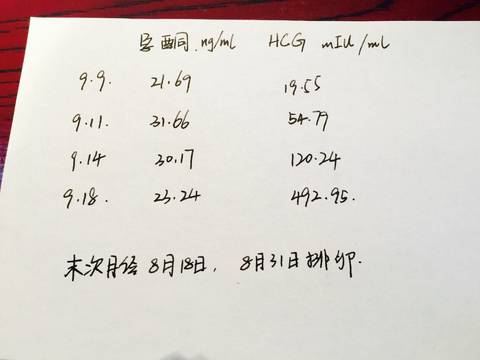 孕酮 ng/ml HCG mIU/ml
9.9. 21.69 19.55
9.11. 31.66 54.79
9.14 30.17 120.24
9.18. 23.24 492.95.
末次月经8月18日, 8月31日排卵.